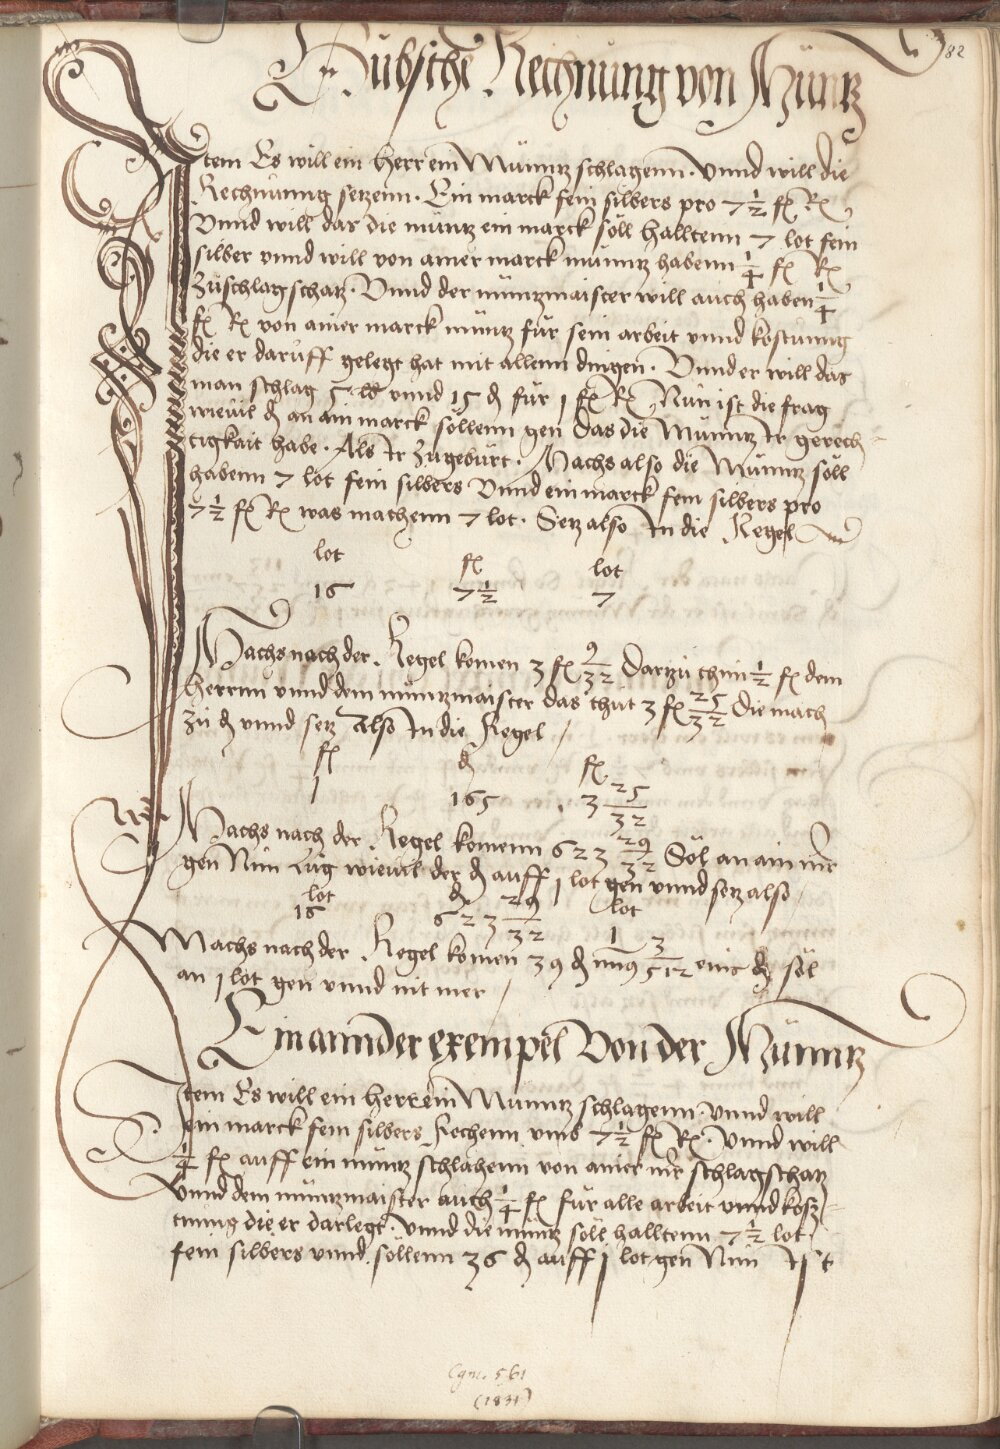 82
Hübsche Rechnung von Müntz
Item Es will ein herr ein Münntz schlagenn · Vnnd will die
Rechnunng setzenn · Ein marck fein silbers pro 7 1/2 fl Rh
Vnnd will das die müntz ein marck soll halltenn 7 lot fein
silber vnnd will von ainer marck münntz habenn 1/4 fl Rh
Zuschlagschatz · Vnnd der müntzmaister will auch haben 1/4
fl Rh von ainer marck müntz für sein arbeit vnnd kostunng
die er daruff gelegt hat mit allenn dingen · Vnnd er will das
man schlag 5 lb vnnd 15 ₰ für 1 fl Rh Nun ist die frag
wieuil ₰ an ain marck söllenn gen das die Münntz Ir gerech-
tigkait habe · Als Ir Zugebürt · Machs also die Münntz soll
habenn 7 lot fein silbers Vnnd ein marck fein silbers pro
7 1/2 fl Rh was machenn 7 lot · Setz also In die Regel
lot fl lot
16 7 1/2 7
Machs nach der Regel komen 3 fl 9/32 Darzu thun 1/2 fl dem
herrnn vnnd dem müntzmaister das thut 3 fl 25/32 Die mach
zu ₰ vnnd setz Also In die Regel
fl ₰ fl
1 165 3 25/32
Machs nach der Regel komenn 623 29/32 Söl an ain mr
gen Nun Lug wieuil der ₰ auff 1 lot gen vnnd setz also
lot ₰ lot
16 623 29/32 1
Machs nach der Regel komen 39 ₰ 3/512 eins ₰ söl
an 1 lot gen vnnd nit mer
Ein annder exempel Von der Münntz
Item Es will ein herr ein Münntz schlagenn vnnd will
ein marck fein silbers Rechenn vmb 7 1/2 fl Rh · Vnnd will
1/4 fl auff ein müntz schlahenn von ainer mr schlagschatz
Vnnd dem müntzmaister auch 1/4 fl für alle arbeit vnnd kosz-
tunng die er darlegt · Vnnd die müntz soll halltenn 7 1/2 lot
fein silbers vnnd söllenn 36 ₰ auff 1 lot gen Nun Ist
Cgm. 561
(1831)